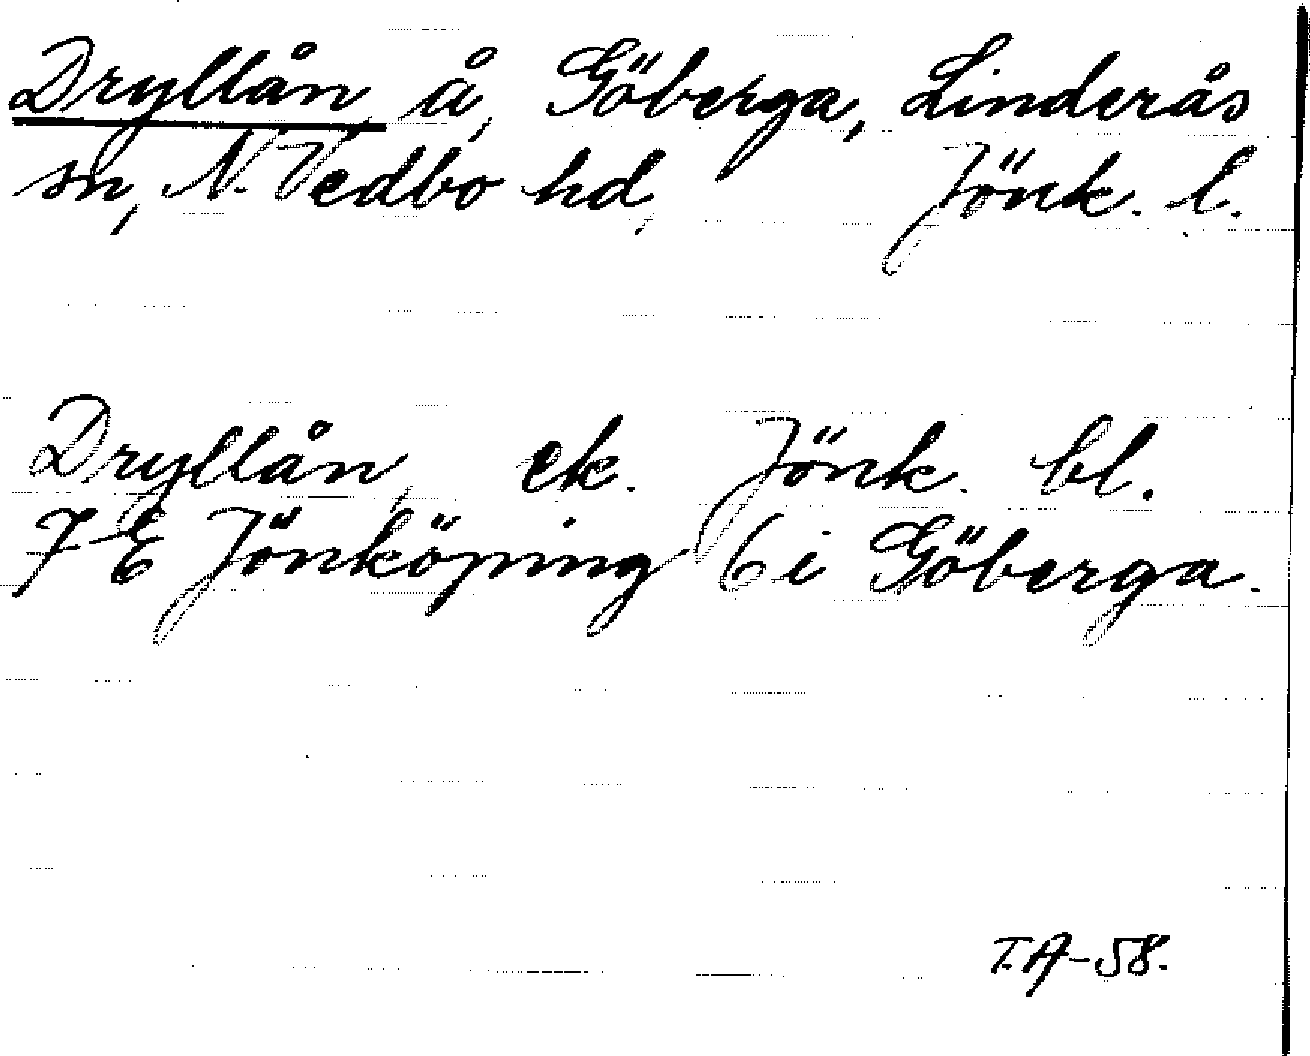 Dryllån, å, Göberga, Linderås
sn, N. Vedbo hd, Jönk. l.
Dryllån, ek. Jönk. bl.
7 E Jönköping 6 i Göberga.
T.A-58.